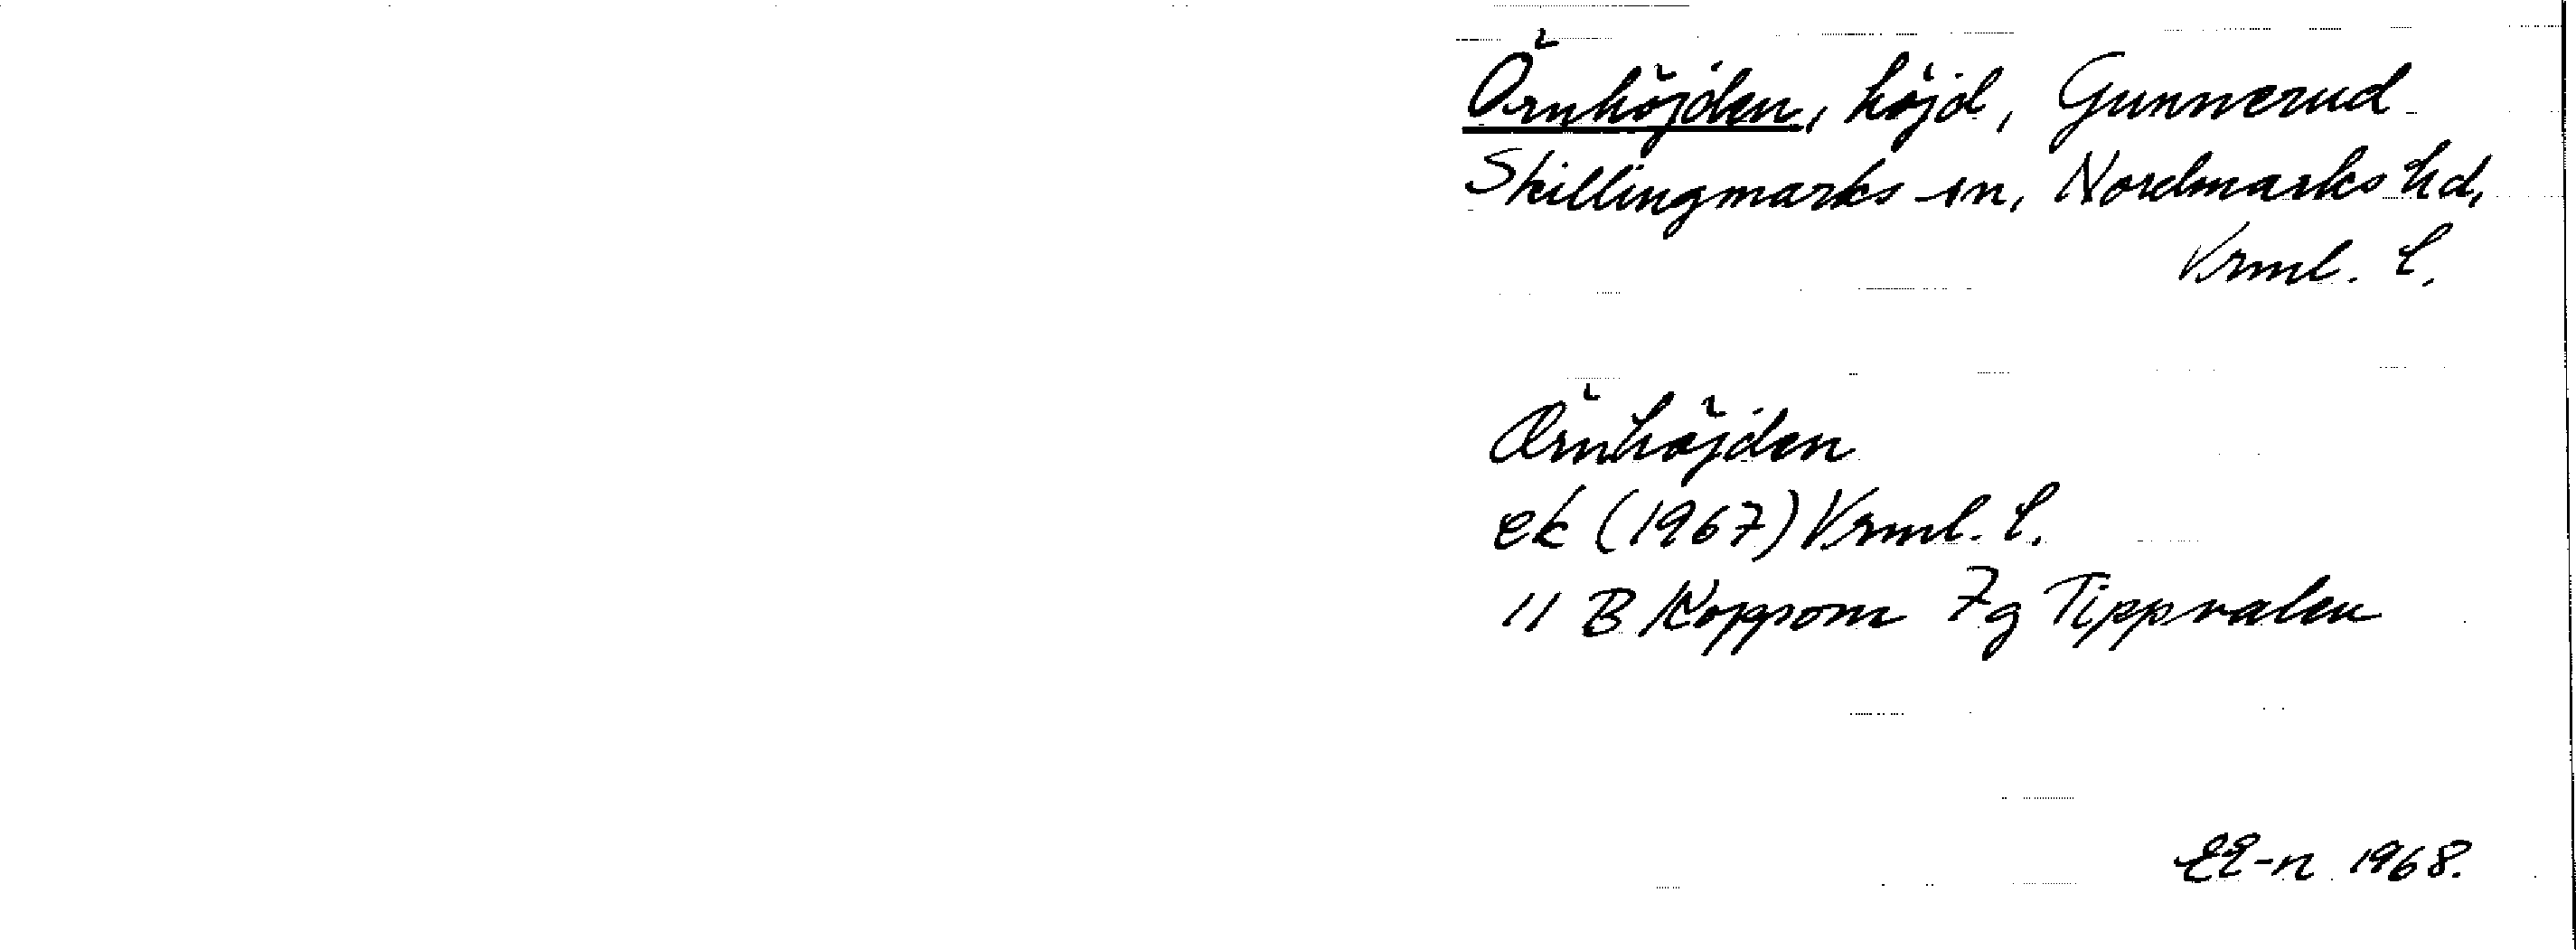 Örnhöjden, höjd, Gunnerud
Skillingmarks sn, Nordmarks hd,
Vrml. l.
Örnhöjden
ek (1967) Vrml. l.
11 B Koppom 7g Tippvalen
1968.